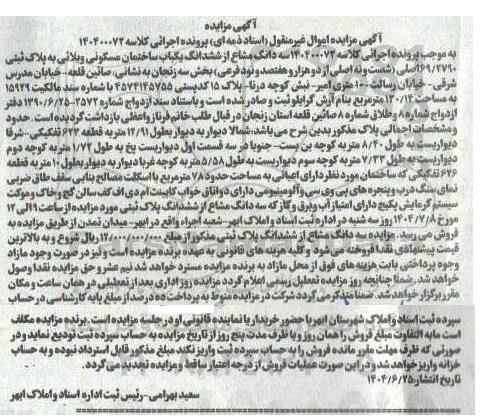 آگهی مزایده
آگهی مزایده اموال غیرمنقول (اسناد ذمه ای) پرونده اجرائی کلاسه ۱۴۰۴۰۰۰۷۲
به موجب پرونده اجرائی کلاسه ۱۴۰۴۰۰۰۷۲ سه دانگ مشاع از ششدانگ یکباب ساختمان مسکونی ویلائی به پلاک ثبتی
۶۹/۲۷۹۰ اصلی (شصت و نه اصلی از دو هزار و هفتصد و نود فرعی) بخش سه زنجان به نشانی: صائین قلعه- خیابان مدرس
شرقی- خیابان رسالت- ۱۰ متری امیر- نبش کوچه درنا- پلاک ۱۵ کدپستی ۴۵۷۴۱۴۵۷۵۵ با شماره سند مالکیت ۱۵۹۲۹
به مساحت ۱۳۰/۱۴ مترمربع بنام آرش کرابلو ثبت و صادر شده است و باستناد سند ازدواج شماره ۲۵۷۲-۱۳۹۰/۶/۲۵ دفتر
ازدواج شماره ۸ و طلاق شماره ۸ صائین قلعه استان زنجان در قبال طلب خانم فرناز واعظی بازداشت گردیده است. حدود
و مشخصات اجمالی پلاک مذکور بدین شرح می باشد: شمالا دیوار به دیوار بطول ۱۲/۹۱ متر به قطعه ۶۲۳ تفکیکی- شرقا
دیواریست به طول ۸/۴۰ متر به کوچه بن بست- جنوبا در سه قسمت اول دیواریست پخ به طول ۱/۷۲ متر به کوچه دوم
دیواریست به طول ۷/۳۳ متر به کوچه سوم دیواریست به طول ۵/۵۸ متر به کوچه غربا دیوار به دیوار بطول ۱۰ متر به قطعه
۶۲۶ تفکیکی که ساختمان مورد نظر دارای اعیانی به مساحت حدود ۷۸ مترمربع با اسکلت مصالح بنایی سقف طاق ضربی
نمای سنگ درب و پنجره های پی وی سی و آلومینیومی دارای دو اتاق خواب کابینت ام دی اف کف سالن گچ و خاک و موکت
سیستم گرمایش پکیج دارای امتیاز آب و برق و گاز که سه دانگ مشاع از ششدانگ پلاک ثبتی مورد مزایده از ساعت ۹ الی ۱۲
مورخ ۱۴۰۴/۷/۸ روز سه شنبه در اداره ثبت اسناد و املاک ابهر- شعبه اجراء واقع در ابهر- میدان تمدن از طریق مزایده به
فروش می رسد. مزایده سه دانگ مشاع از ششدانگ پلاک ثبتی مذکور از مبلغ ریال شروع و به بالاترین
قیمت پیشنهادی نقدا فروخته می شود و کلیه هزینه های قانونی به عهده برنده مزایده است و نیز در صورت وجود مازاد
وجوه پرداختی بابت هزینه های فوق از محل مازاد به برنده مزایده مسترد خواهد شد نیم عشر و حق مزایده نقدا وصول
خواهد شد. ضمنا چنانچه روز مزایده تعطیل رسمی اعلام گردد مزایده روز اداری بعد از تعطیلی در همان ساعت و مکان
مقرر برگزار خواهد شد. ضمنا متذکر می گردد شرکت در مزایده منوط به پرداخت ده درصد از مبلغ پایه کارشناسی در حساب
سپرده ثبت اسناد و املاک شهرستان ابهر با حضور خریدار یا نماینده قانونی او در جلسه مزایده است. برنده مزایده مکلف
است مابه التفاوت مبلغ فروش را همان روز و یا ظرف مدت پنج روز از تاریخ مزایده به حساب سپرده ثبت تودیع نماید و در
صورتی که ظرف مهلت مقرر مانده فروش را به حساب سپرده ثبت واریز نکند مبلغ مذکور قابل استرداد نبوده و به حساب
خزانه واریز خواهد شد و در این صورت عملیات فروش از درجه اعتبار ساقط و مزایده تجدید می گردد.
تاریخ انتشار ۱۴۰۴/۶/۲۵
سعید بهرامی- رئیس ثبت اداره اسناد و املاک ابهر